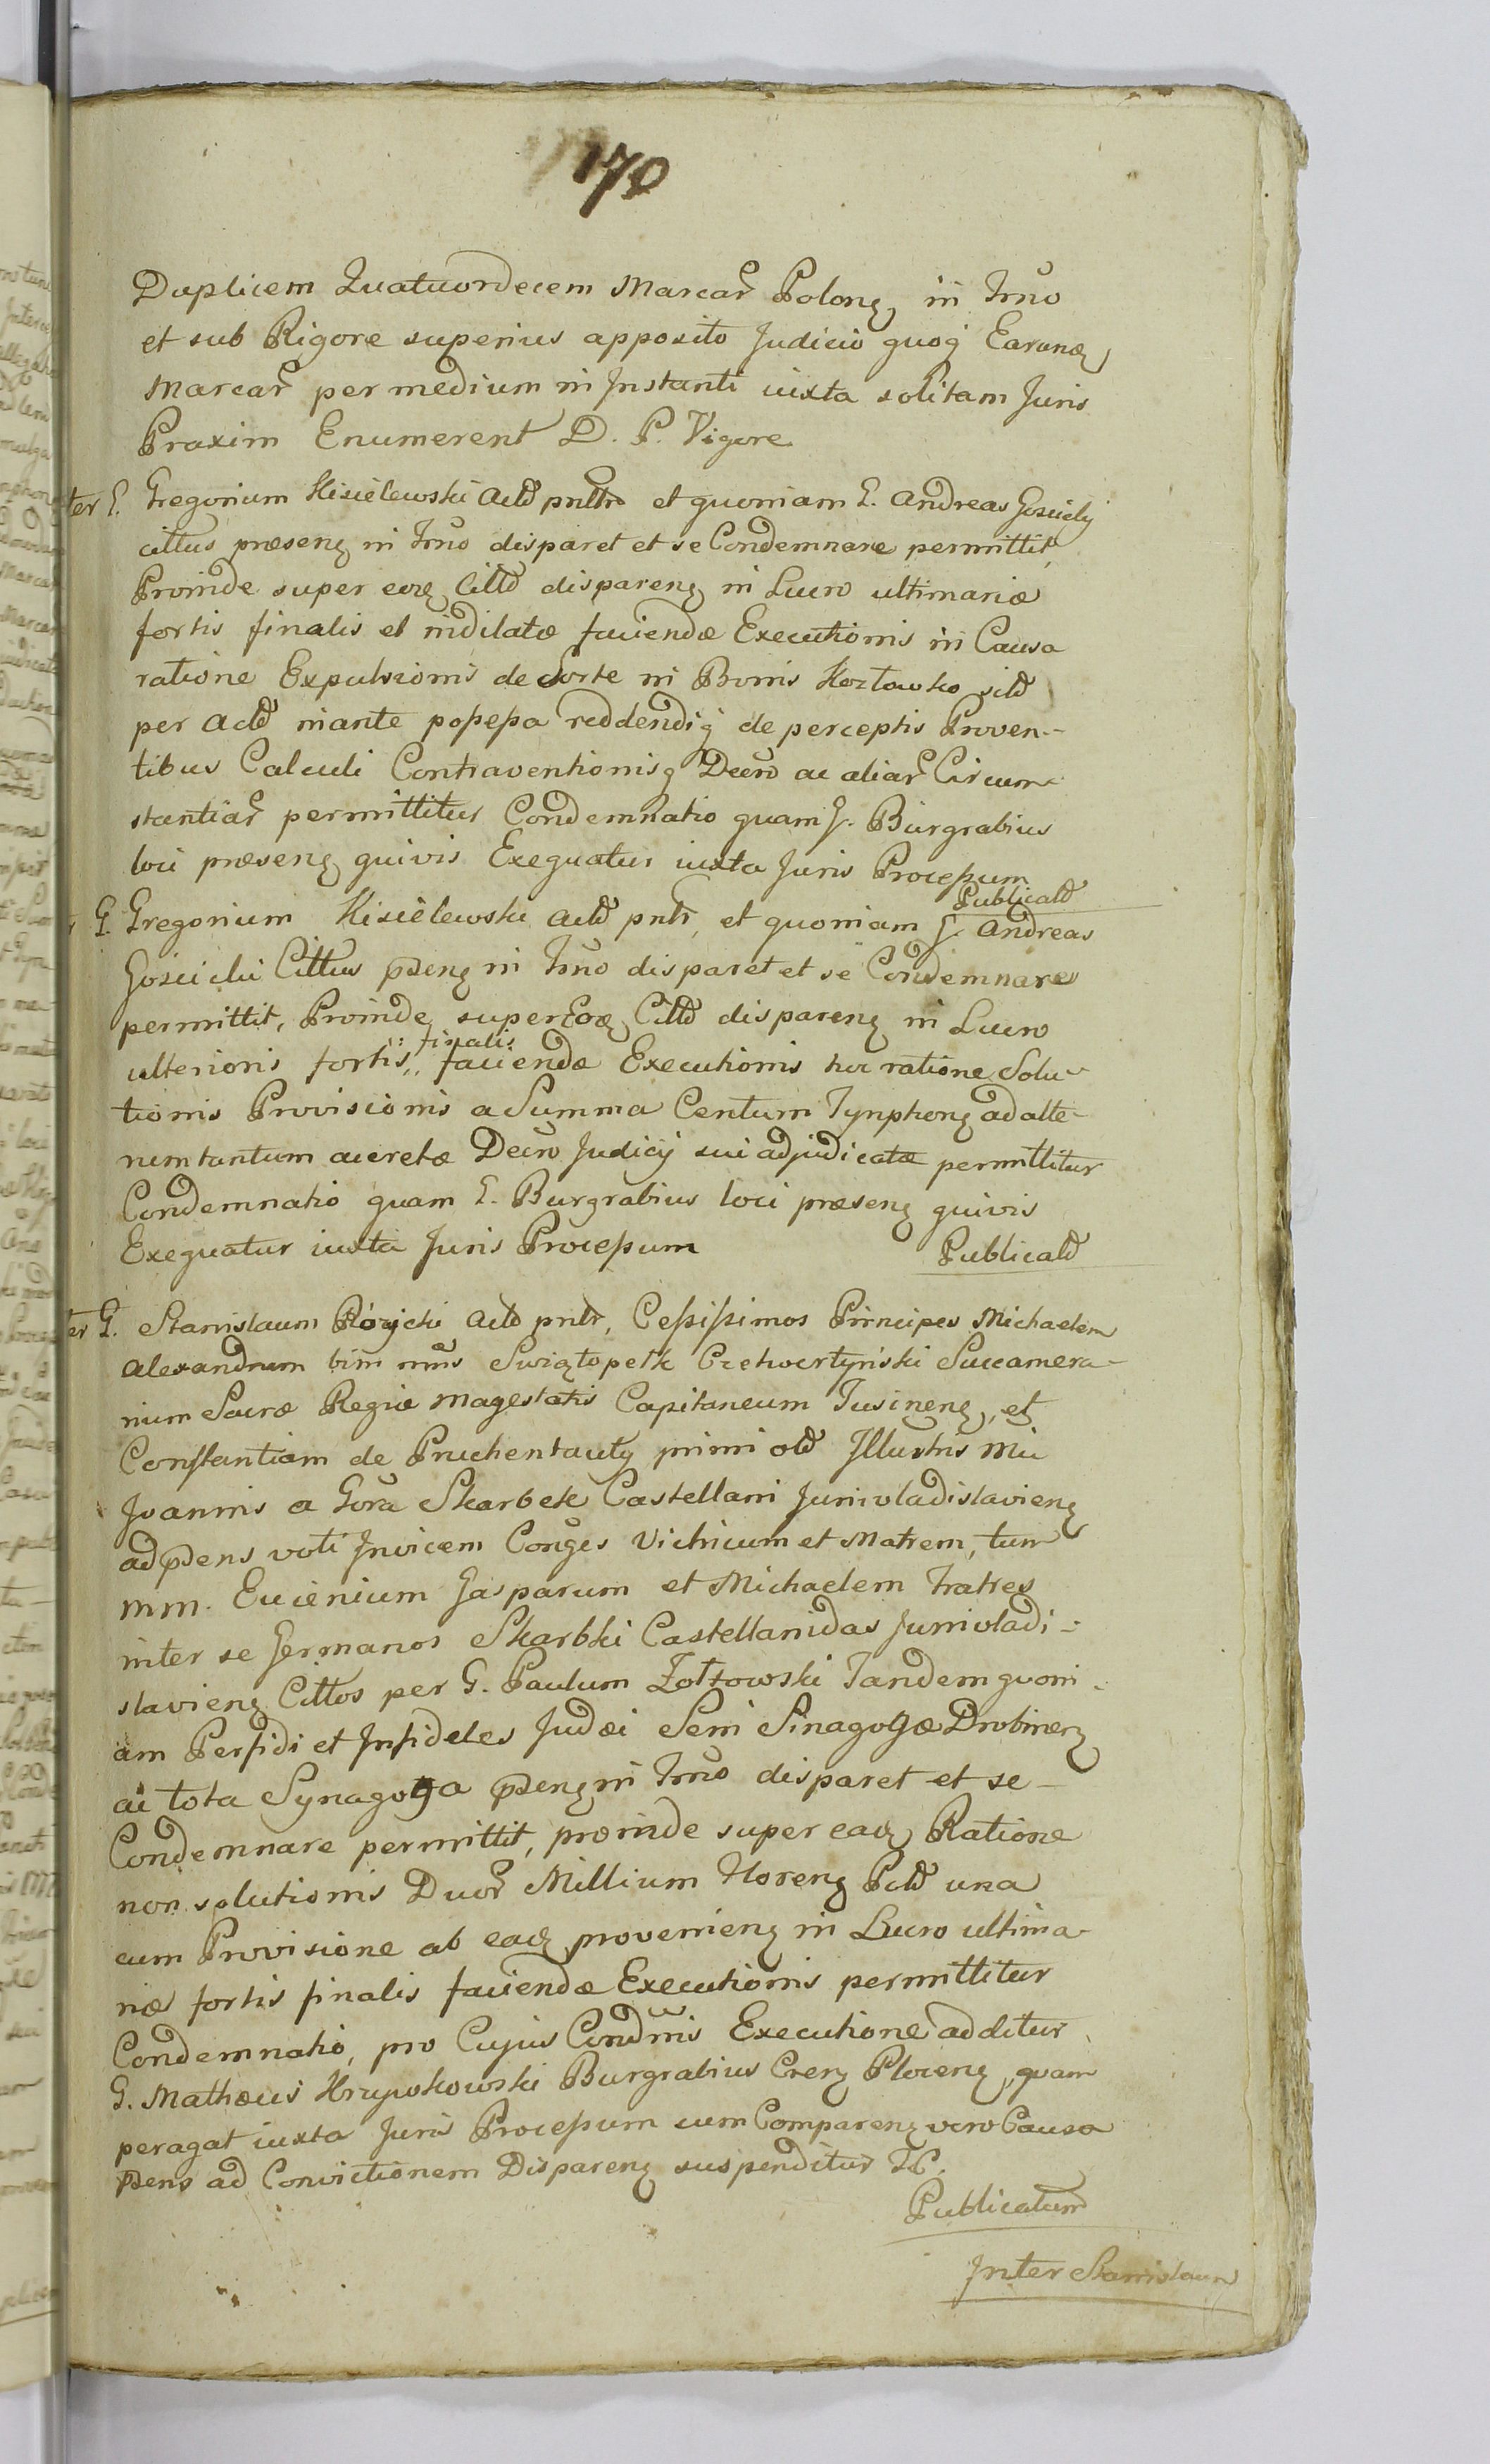 170
Duplicem Quatuordecem Marcar̃ Polonꝫ in Tm̃o
et sub Rigore superius apposito Judicio quoq̨ Earundꝫ
Marcar̃ per medium in Instanti iuxta solitam Juris
Praxim Enumerent D. P. Vigore
ter G. Gregorium Kisielewski Actd pnltr et quoniam G. Andreas Goscicky
cittus præsenꝫ in Tm̃o disparet et se Condemnare permittit,
Proinde super eodꝫ Cittd disparenꝫ in Lucro ultimariæ
fortis finalis et indilatæ faciendæ Executionis in Causa
ratione Expulsionis de Sorte in Bonis Kozłowko sitd
per Actd inante possessa reddendiq̨ de perceptis Proven-
tibus Calculi Contraventionisq̨ Decro ac aliar̃ Circum
stantiar̃ permittitur Condemnatio quam G. Burgrabius
loci præsenꝫ quivis Exequatur iuxta Juris Processum
Publicatd
G. Gregorium Kisielewski actd pnltr, et quoniam G. Andreas
Goscicki Cittus p̃senꝫ in Tm̃o disparet et se Condemnare
permittit, Proinde super Eodꝫ Cittd disparenꝫ in Lucro
ulterioris fortis,, finalis: faciendæ Executionis hoc ratione Solu-
tionis Provisionis a Summa Centum Tynphonꝫ ad alte-
rum tantum accretæ Decro Judicij sui adjudicatæ permittitur
Condemnatio quam G. Burgrabius loci præsenꝫ quivis
Exequatur iuxta Juris Processum Publicatd
er G. Stanislaum Róẏcki Actd pnltr, Celsissimos Principes Michaelem
Alexandrum bim nm̃s Swiątopełk Czetwertyński Succamera-
rium Sacræ Regiæ Magestatis Capitaneum Jusinenꝫ, et
Constantiam de Pruchentauty primi otd Illustris Mci
Joannis a Gora Skarbek Castellani Junivladislavienꝫ
ad p̃sens voti Invicem Conges Vitricum et Matrem, tum
MM. Eucenium Gasparum et Michaelem Fratres
inter se Germanos Skarbki Castellanidas Junivladi-
slavienꝫ Cittos per G. Paulum Żołtowski Tandem quoni-
am Perfidi et Infideles Judæi Seni Sinagogæ Drobinenꝫ
ac tota Synagoga p̃senꝫ in Tm̃o disparet et se
Condemnare permittit, proinde super eadꝫ Ratione
non solutionis Duor̃ Millium Florenꝫ Pold una
cum Provisione ab eadꝫ provenienꝫ in Lucro ultima-
riæ fortis finalis faciendæ Executionis permittitur
Condemnatio, pro Cujus Condm̃nis Executione additur
G. Mathæus Krzywkowski Burgrabius Crenꝫ Plocenꝫ, quam
peragat iuxta Juris Processum cum Comparenꝫ vero Causa
p̃sens ad Convictionem Disparenꝫ suspenditur TC.
Publicatum
Inter Stanislaum